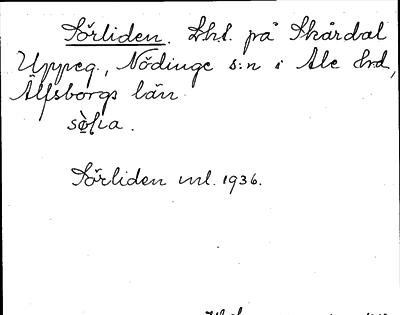 Sörliden. Lht. på Skårdal
Uppeg., Nödinge s:n i Ale hd,
Älfsborgs län.
Sörliden inl. 1936.